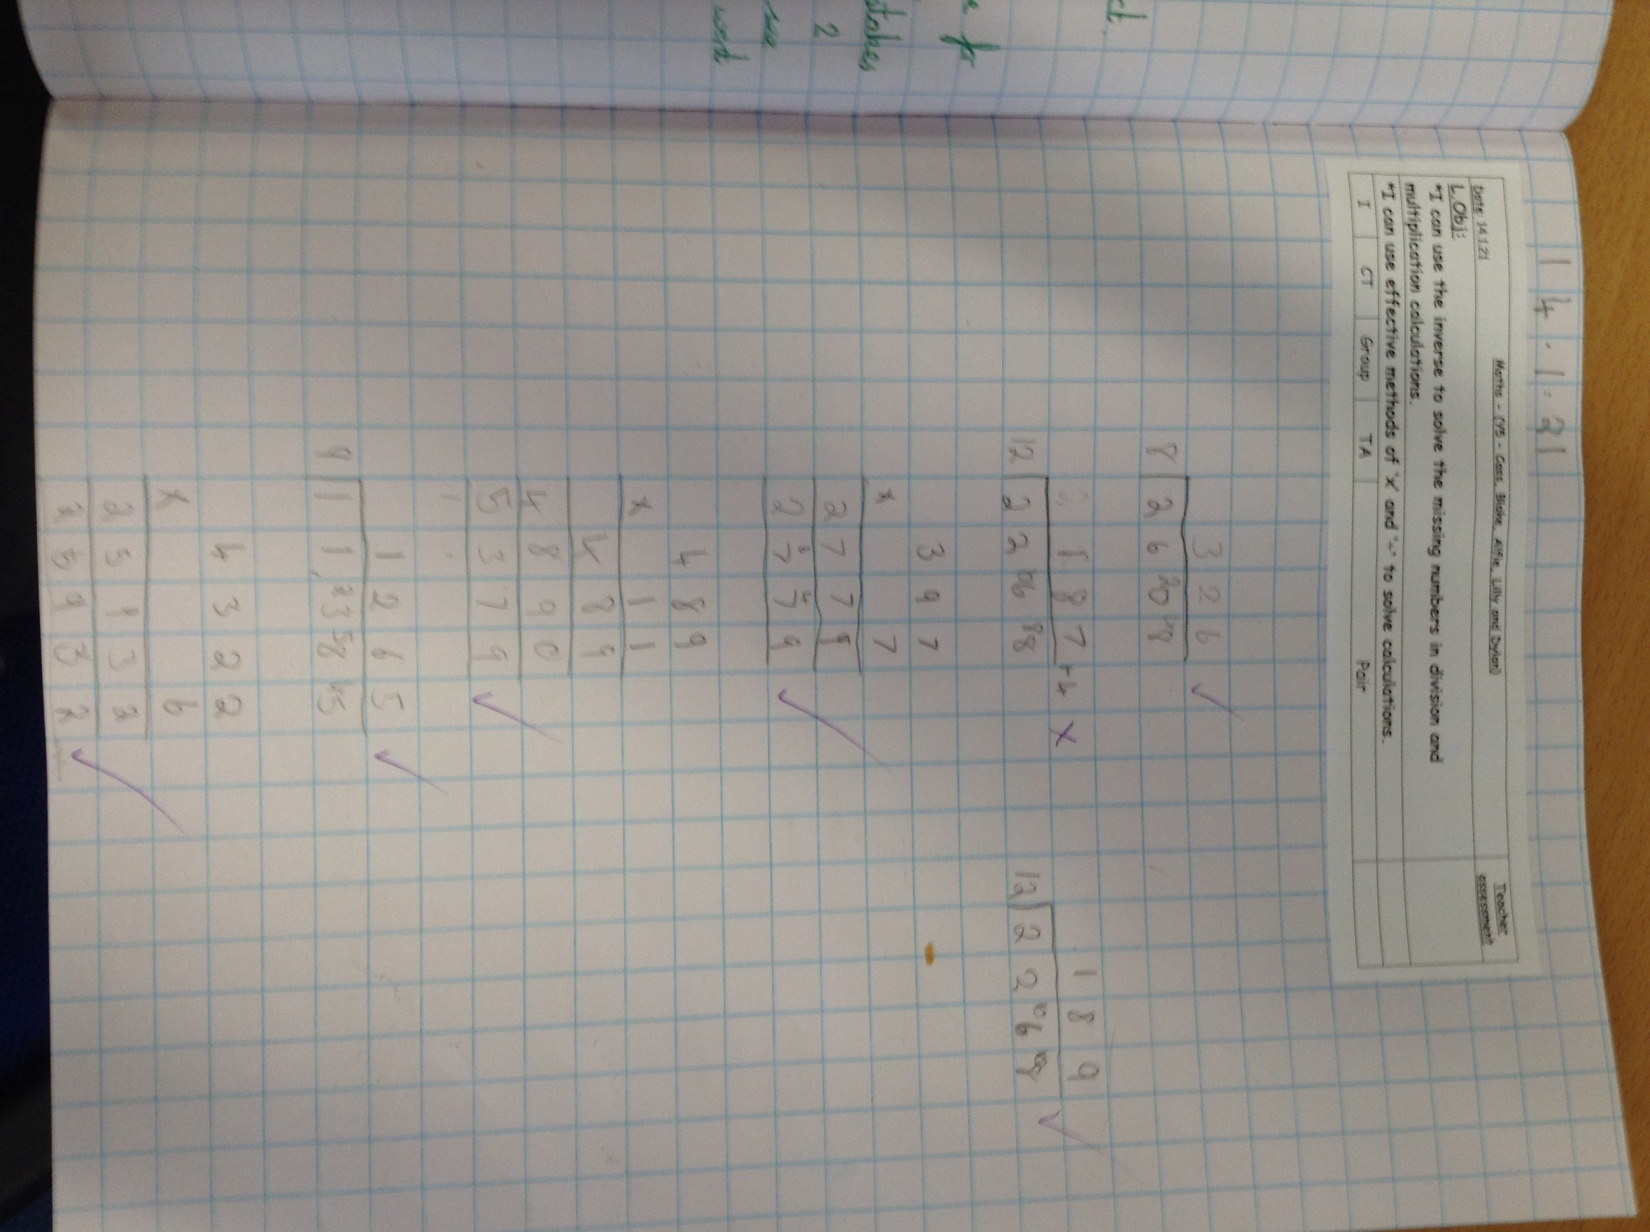 14.1.21
Maths - (Y5 - Cass, Blake, Alfie, Lilly and Dylan)
Teacher assessment
Date 14.1.21
L.Obj:
*I can use the inverse to solve the missing numbers in division and
multiplication calculations.
*I can use effective methods of 'x' and '÷' to solve calculations.
I CT Group TA Pair
3 2 6
8 2 6 20 8
1 8 7 r4 x
12 2 2 6 8
1 8 9
12 2 2 6 8
3 9 7
x 7
2 7 7 9
2 7 7 9
4 8 9
x 1 1
4 8 9
4 8 9 0
5 3 7 9
1 2 6 5
9 1 1 3 8 5
4 3 2 2
x 6
2 5 9 3 2
2 5 9 3 2
ct.
e for
stakes
2
word